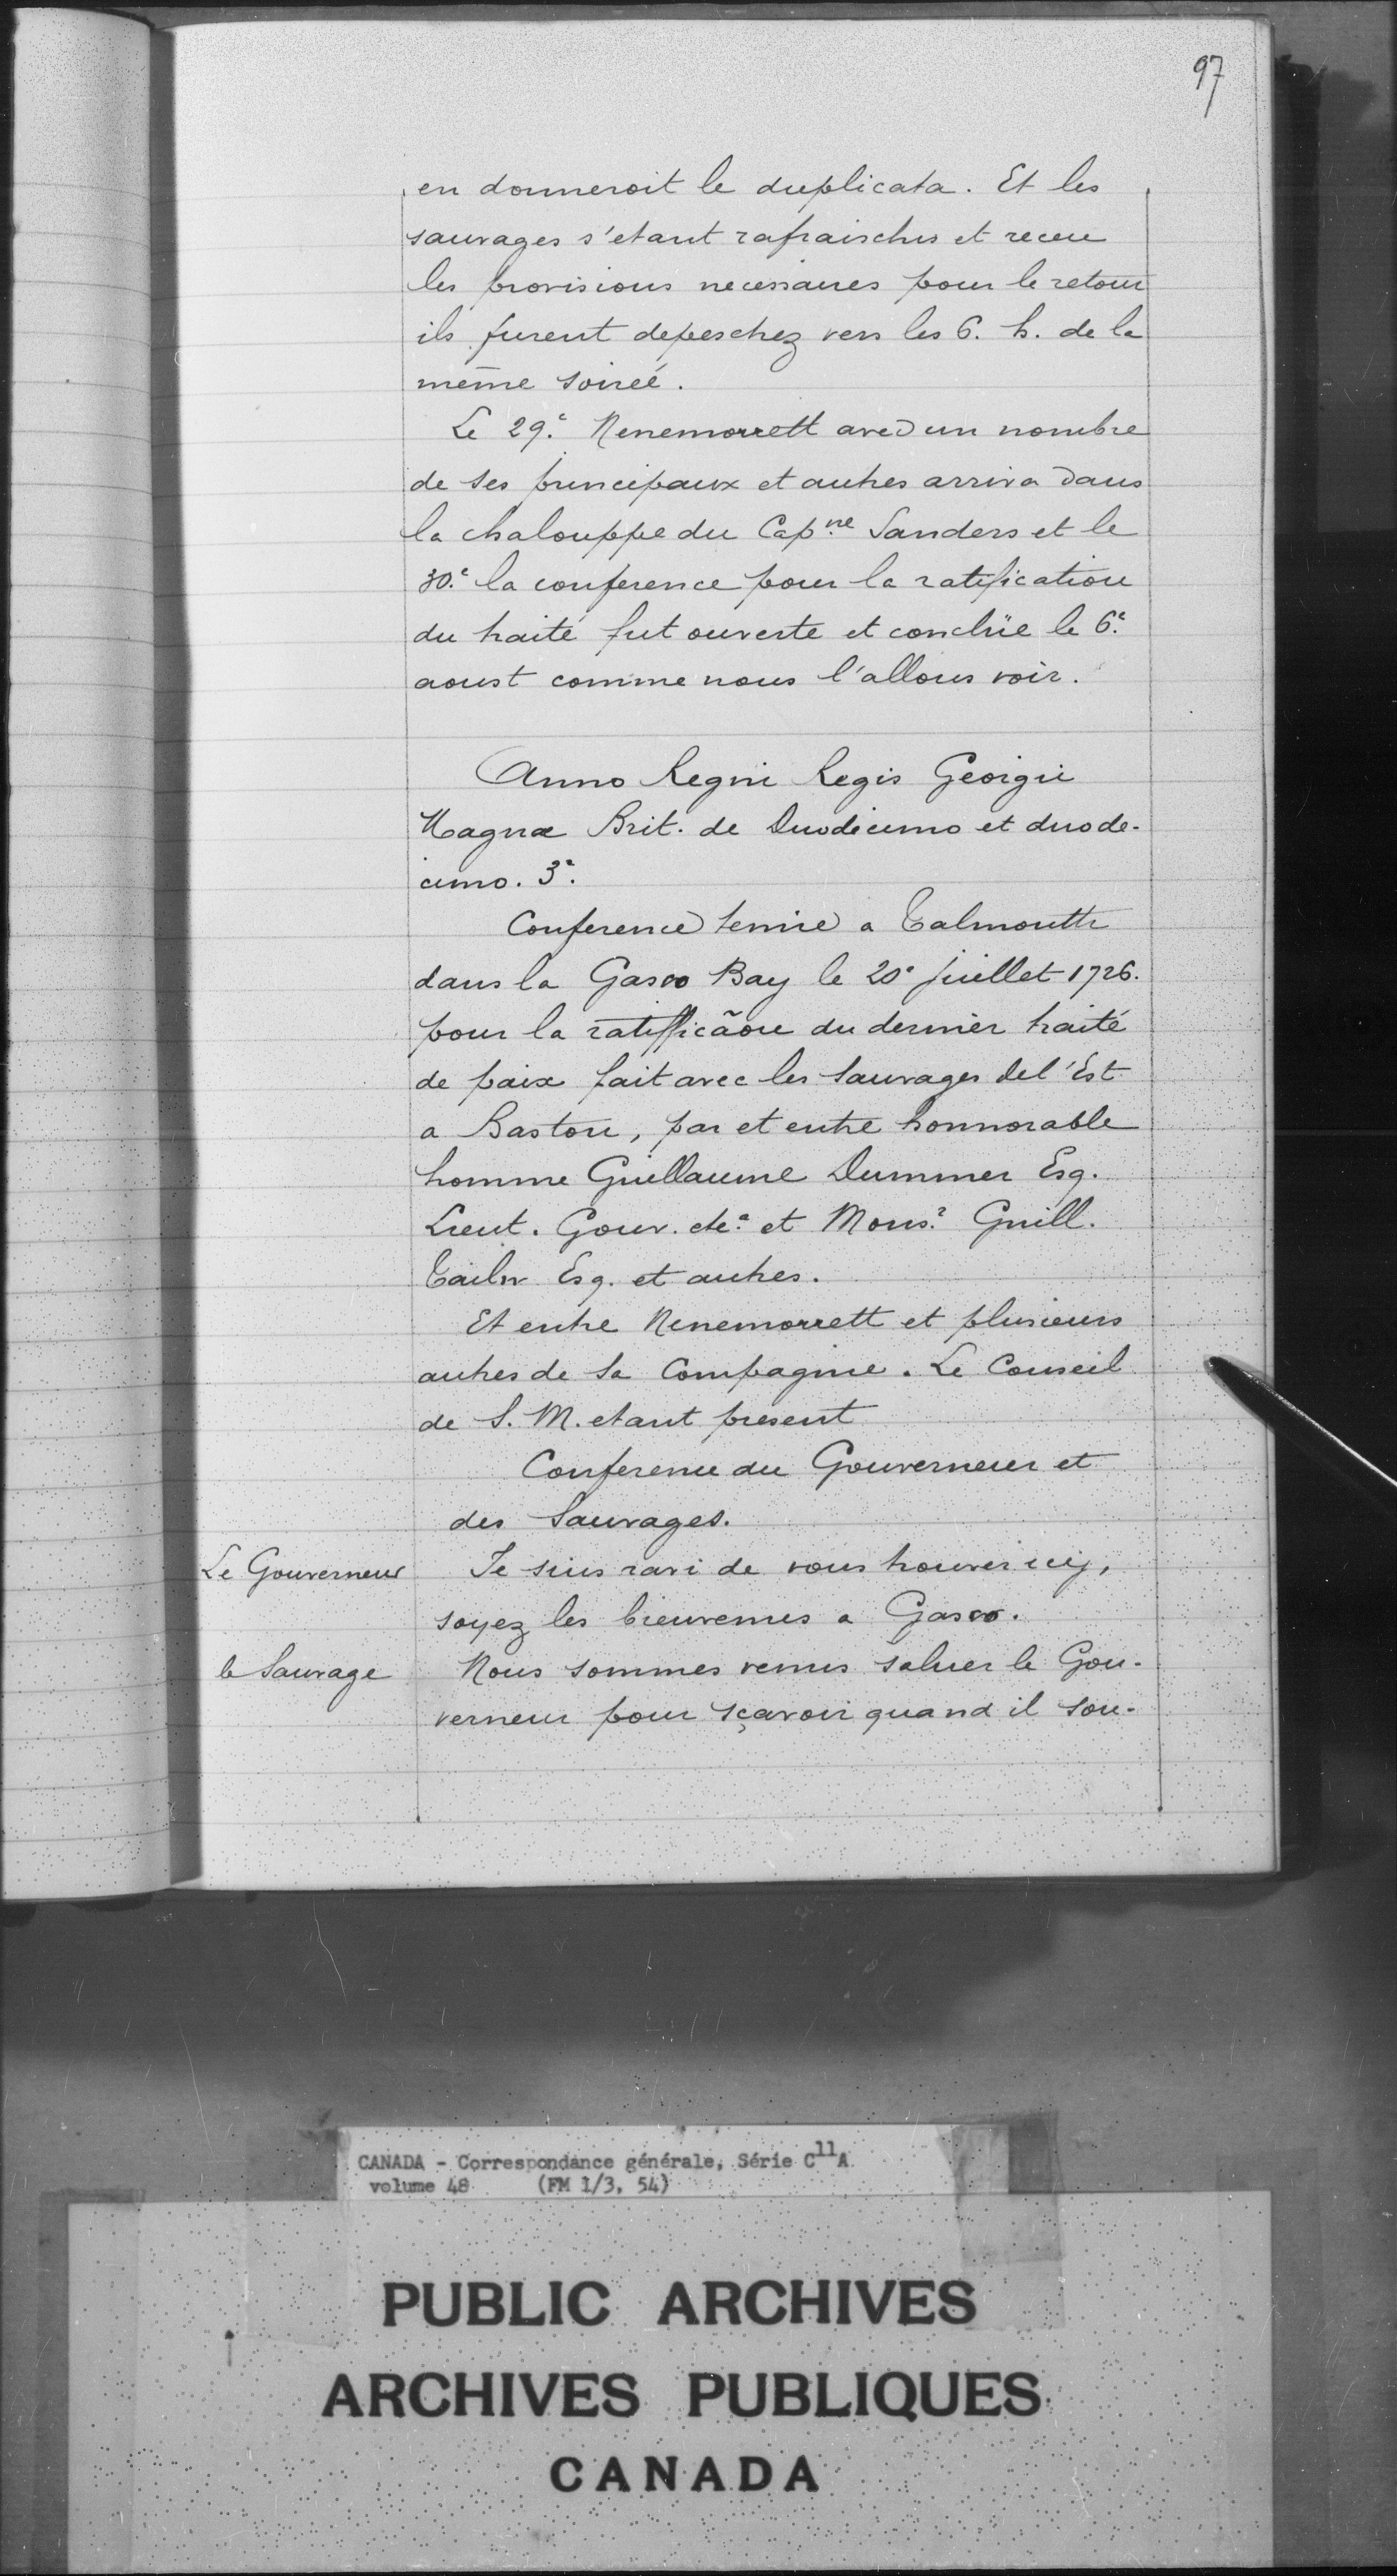 97
en donneroit le duplicata. Et les
sauvages s'etant rafraischis et receu
les provisions necessaires pour le retour
ils furent depeschez vers les 6. h. de la
même soireé.
Le 29.e Nenemorrett avec un nombre
de ses principaux et autres arriva dans
la chalouppe du Cap.ne Sanders et le
30.e la conference pour la ratification
du traité fut ouverte et conclüe le 6.e
aoust comme nous l'allons voir.
Anno Regni Regis Georgii
Magnæ Brit. de Duodecimo et duode-
cimo. 3.e
Conference tenüe a Talmouth
dans la Gasco Bay le 20e juillet 1726.
pour la ratifficãon du dernier traité
de paix fait avec les Sauvages del'Est
a Baston, par et entre honnorable
homme Guillaume Dummer Esq.
Lieut. Gouv. &c.a et Mons.r Guill.
Tailer Esq. et autres.
Et entre Nenemorrett et plusieurs
autres de sa Compagnie. Le Conseil
de S. M. etant present
Conference du Gouverneur et
des Sauvages.
Le Gouverneur Je suis ravi de vous trouver icy,
soyez les bienvenus a Gasco.
le Sauvage Nous sommes venus saluer le Gou-
verneur pour sçavoir quand il sou-
CANADA - Correspondance générale, Série C11A
volume 48 (FM 1/3, 54)
PUBLIC ARCHIVES
ARCHIVES PUBLIQUES
CANADA